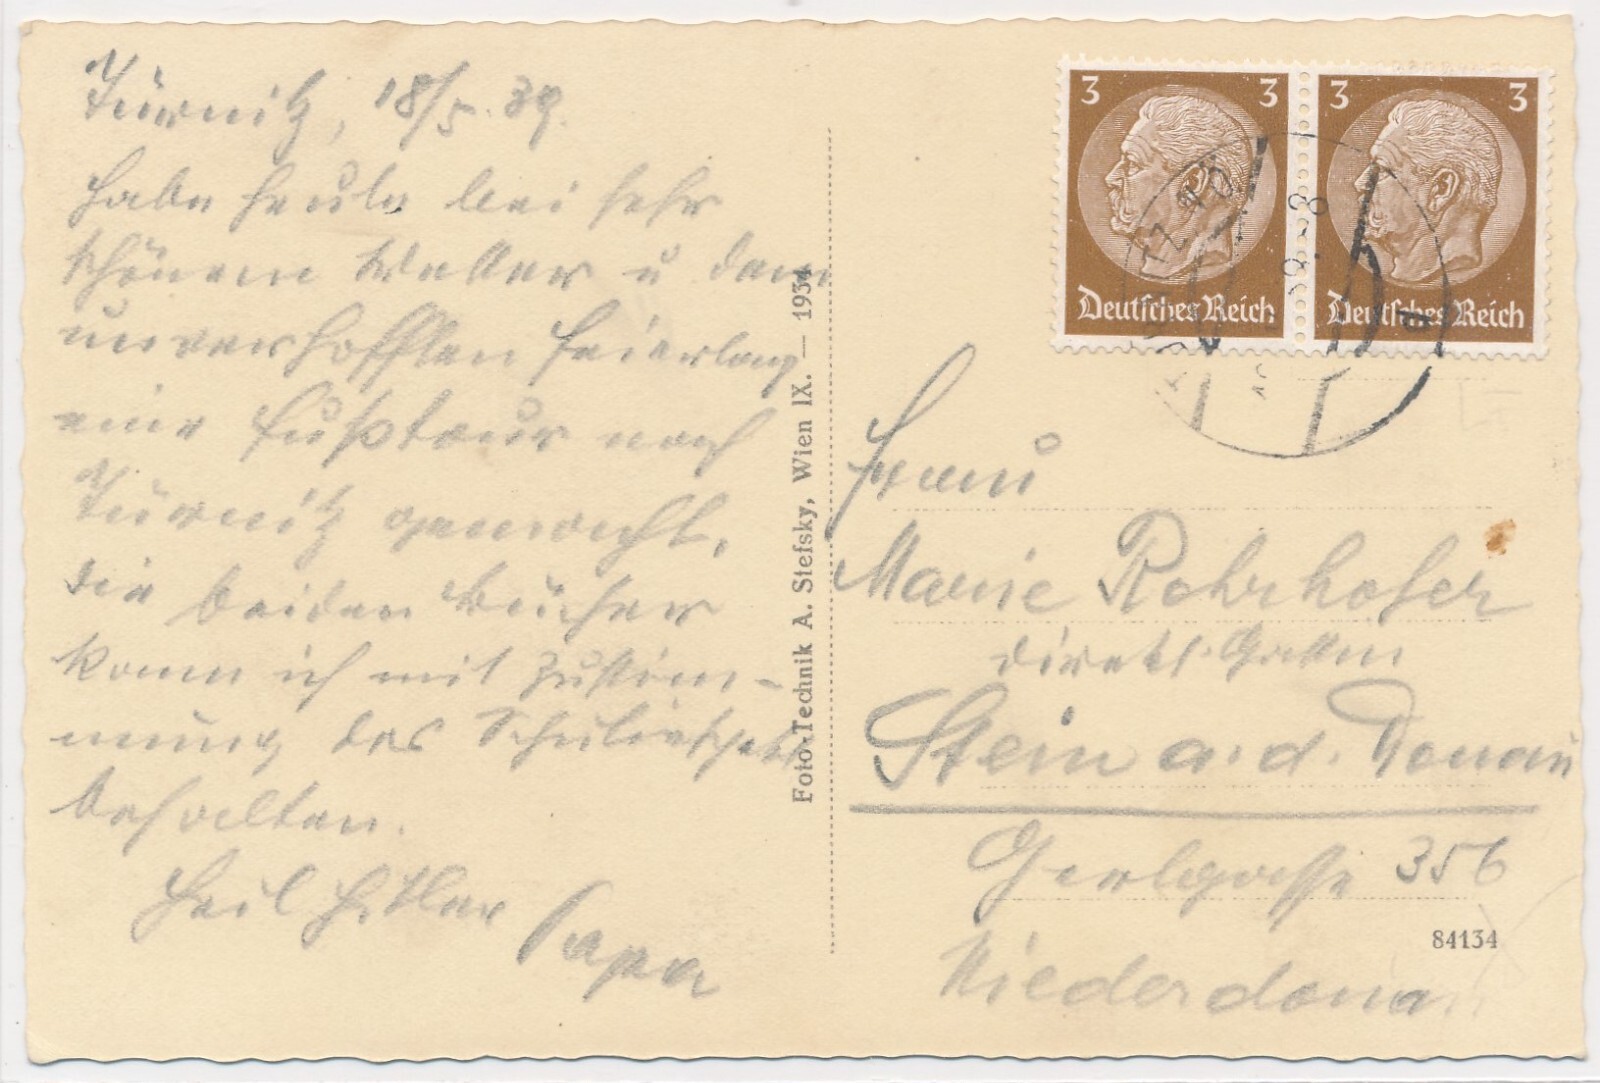 Türnitz, 18/5. 39.
Habe heute bei sehr
schönem Wetter u dem
unverhofften Feiertag
eine Fußtour nach
Türnitz gemacht,
die beiden Bücher
kann ich mit Zustim-
mung des
behalten.
Heil Hitler Papa
Foto-Technik A. Stefsky, Wien IX. — 1934
3 3
Deutsches Reich
3 3
Deutsches Reich
Frau
Marie Rohrhofer
Direkt. Gattin
Stein a. d. Donau
356
Niederdonau
84134